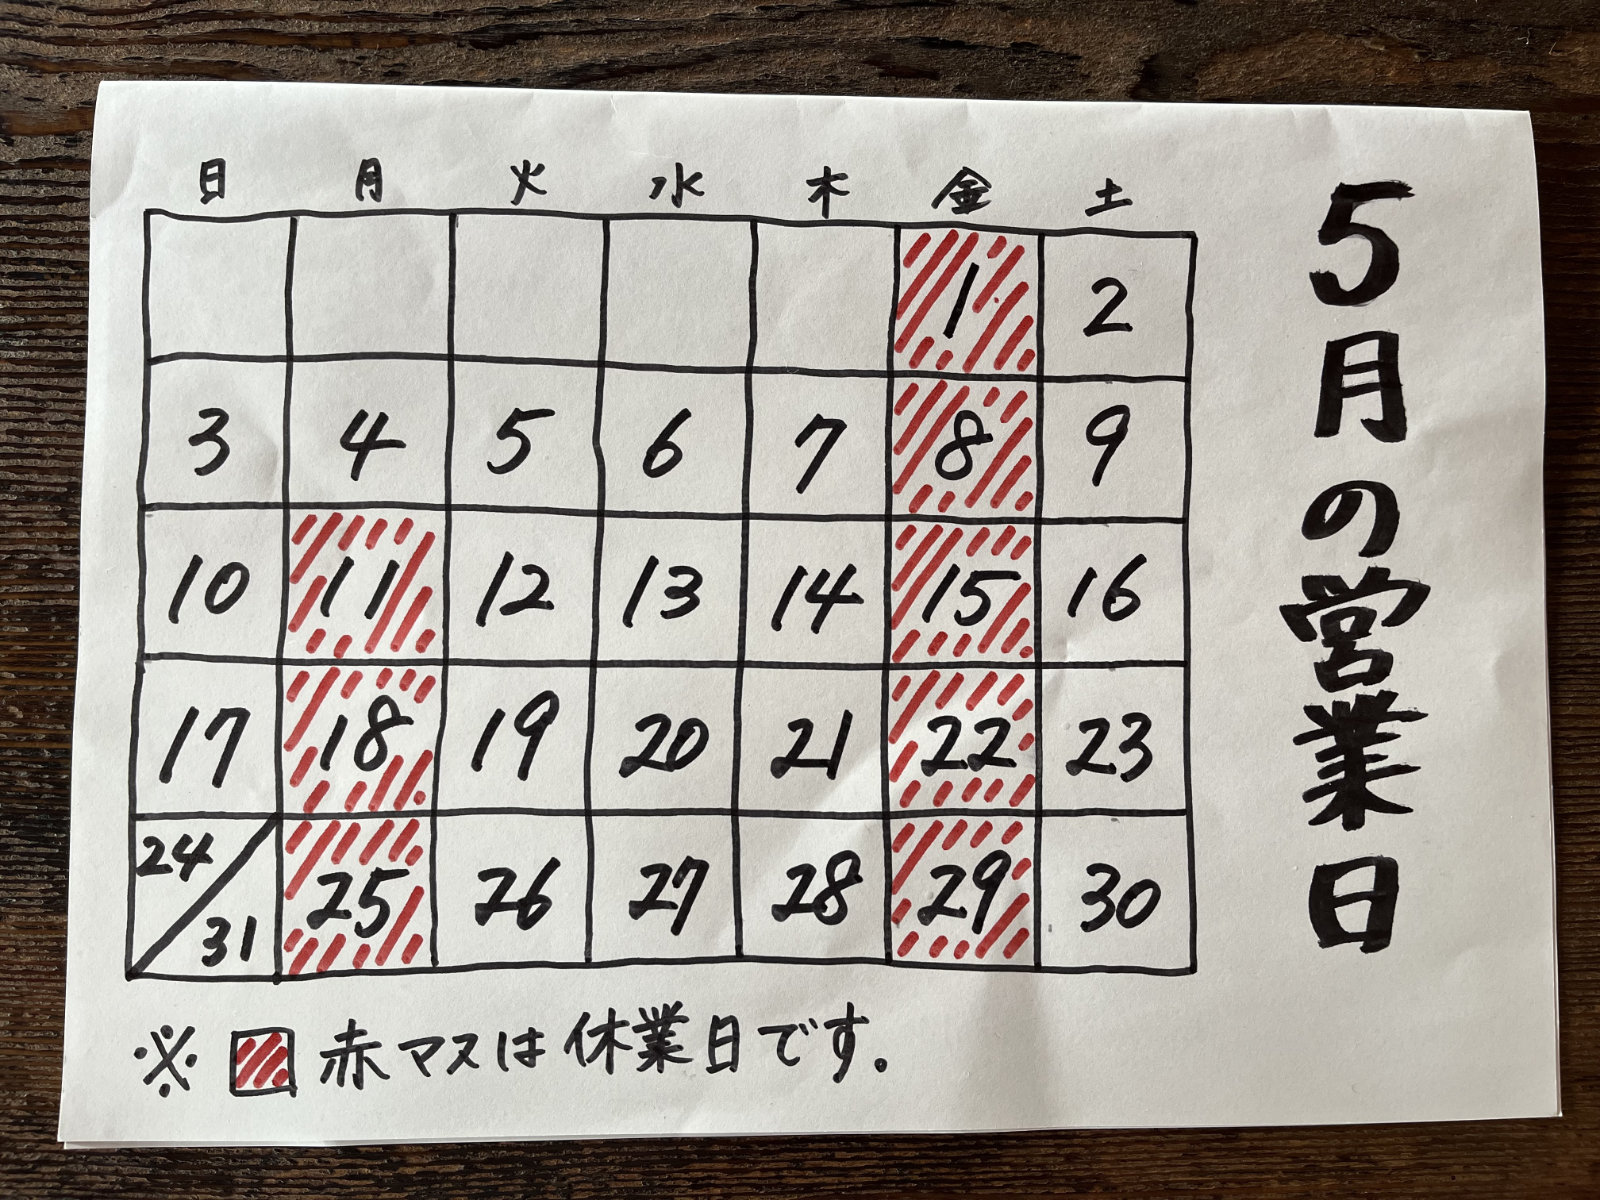 5月の営業日
日 月 火 水 木 金 土
1 2
3 4 5 6 7 8 9
10 11 12 13 14 15 16
17 18 19 20 21 22 23
24/31 25 26 27 28 29 30
※ 赤マスは休業日です。